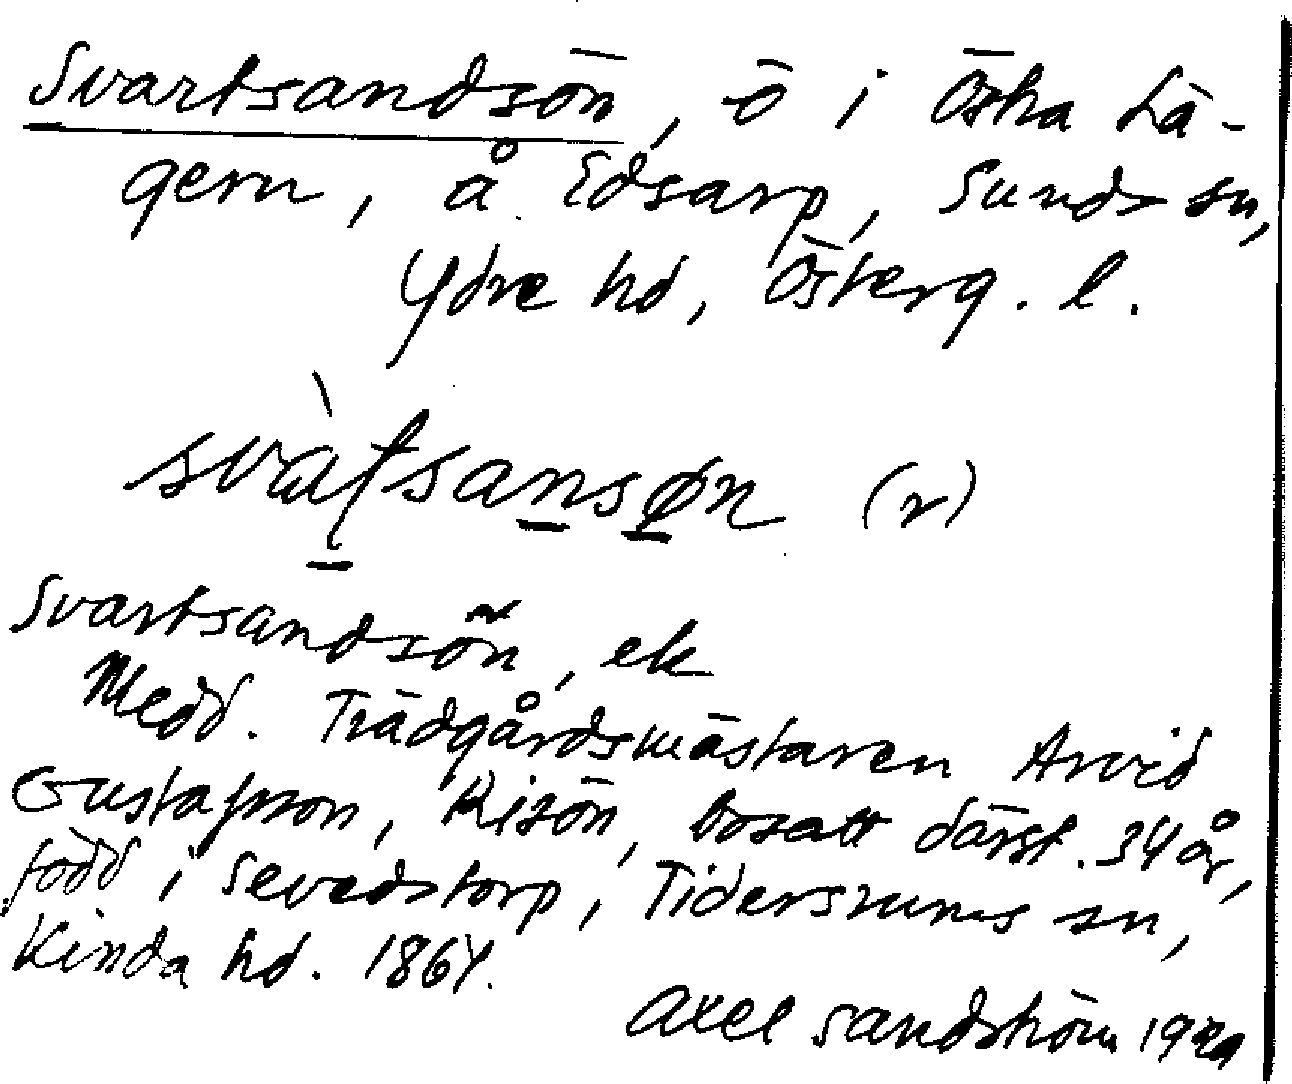 Svartsandsön, ö i Östra Lä-
gern, å Edsarp, Sunds sn,
Ydre hd, Österg. l.
svàtsansøn (r)
Svartsandsön, ek
Medd. Trädgårdsmästaren Arvid
Gustafsson, Risön, bosatt därst. 34 år,
född i Sevedstorp, Tidersrums sn,
Kinda hd. 1864.
Axel Sandström